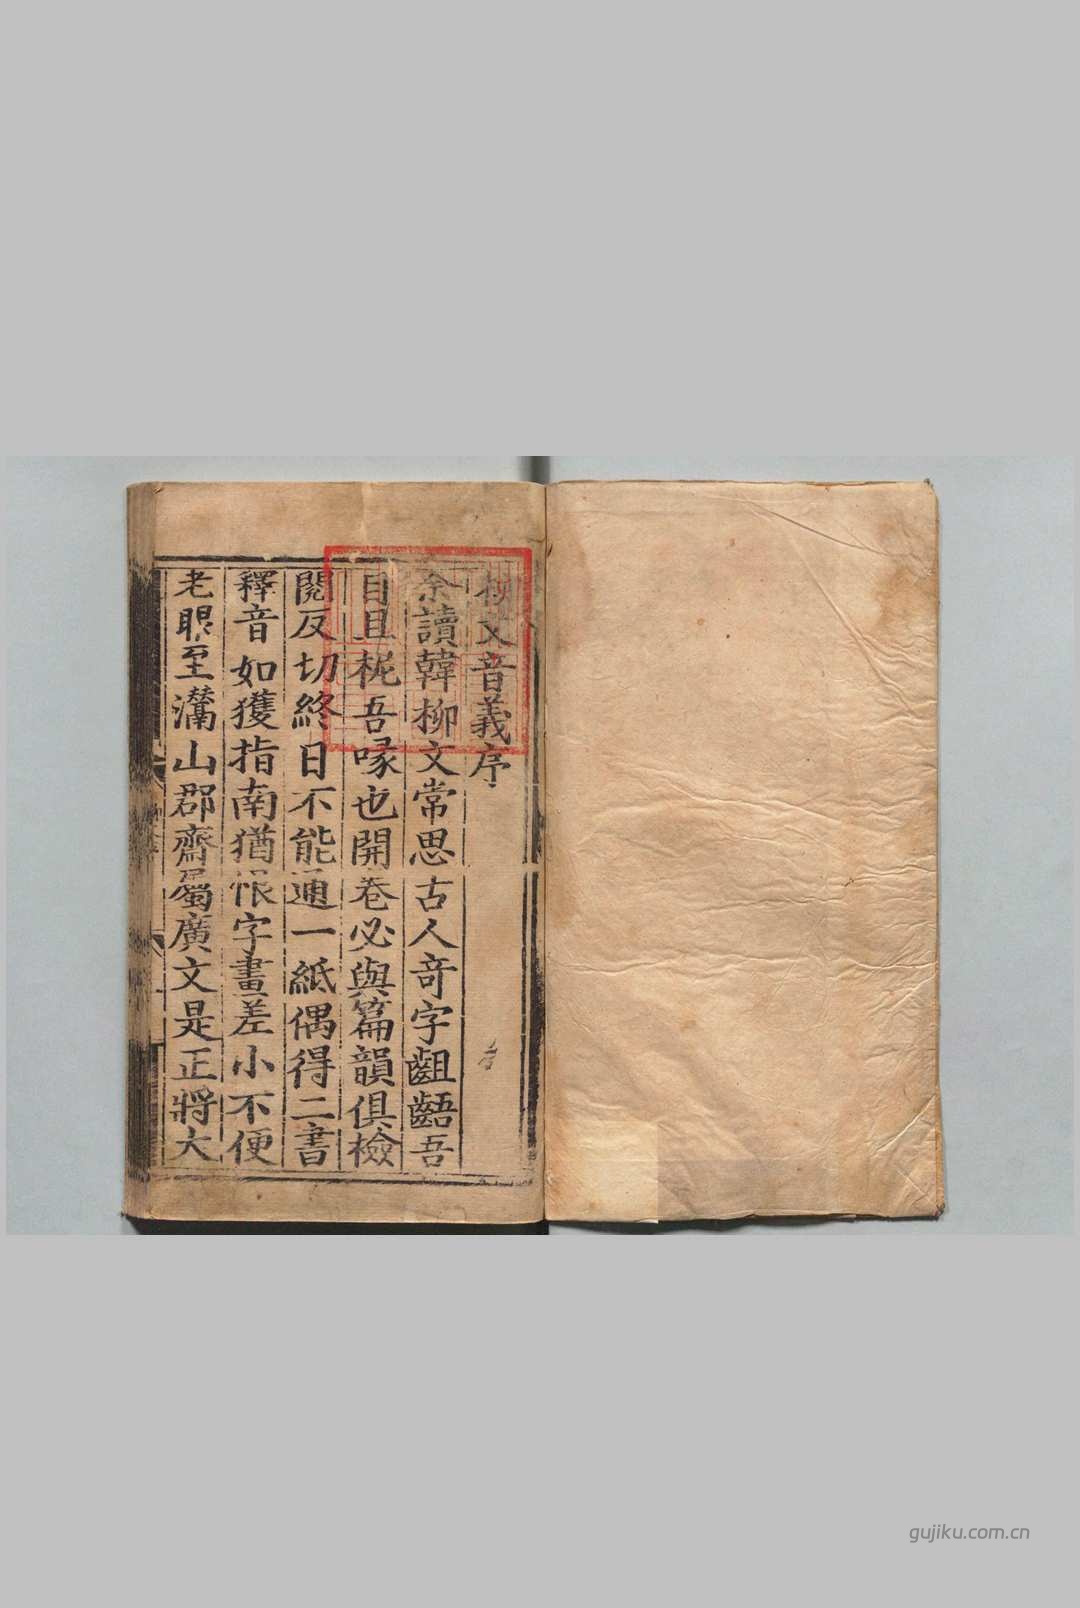 柳文音義序
余讀韓柳文常思古人奇字齟齬吾
目且柅吾喙也開卷必與篇韻俱檢
閱反切終日不能通一紙偶得二書
釋音如獲指南猶恨字畫差小不便
老眼至灊山郡齋屬廣文是正將大
gujiku.com.cn